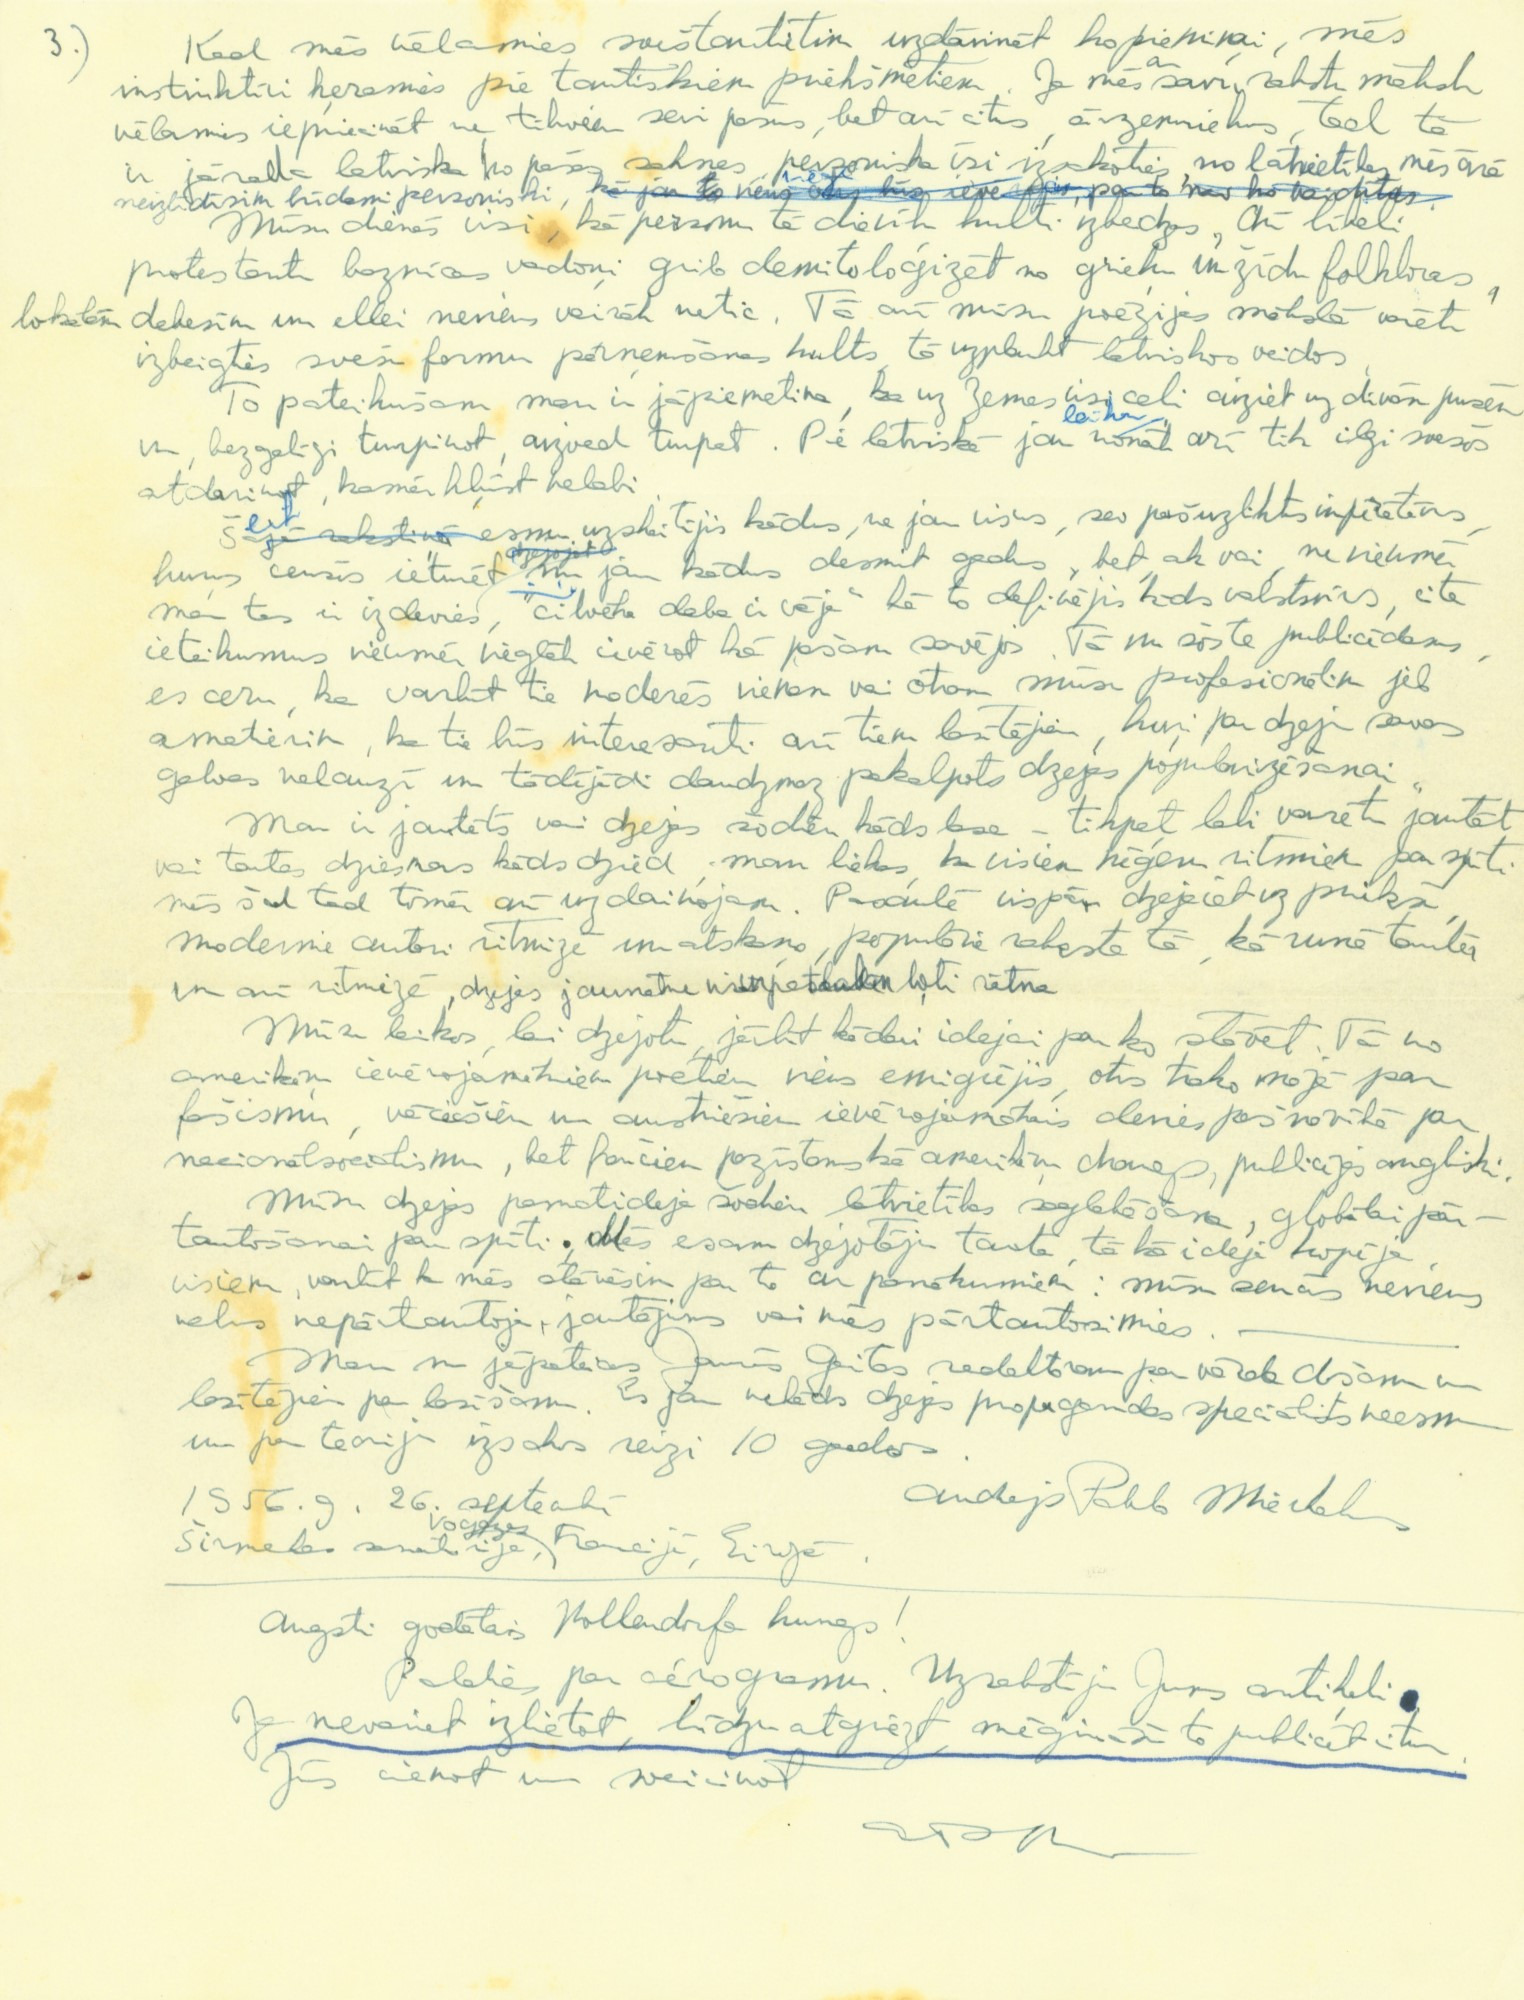 3.) Kad mēs vēlamies sveštautietim uzdāvināt ko piemiņai, mēs
instinktīvi ķeramies pie tautiskiem priekšmetiem. Ja mēs ar savu rakstu mākslu
vēlamies iepriecināt ne tikvien sevi pašus, bet arī citus, ārzemniekus, tad tā
ir jārada latviska no pašas saknes, personiska īsi izsakoties, no latvietības mēs ārā
neizkļūsim būdami personiski, kā jau to viens otrs būs ievērojis, par to nav ko vaidētas.
Mūsu dienās visi, kā personu tā dievību kulti izbeidzas, arī lieli
protestantu baznīcas vadoņi grib demitoloģizēt no grieķu un žīdu folkloras,
lokālām debesīm un ellei neviens vairāk netic. Tā arī mūsu poēzijas mākslā varētu
izbeigties svešu formu pārņemšanas kults, tā uzplaukt latviskos veidos.
To pateikušam man ir jāpiemetina, ka uz Zemes visi ceļi aiziet uz divām pusēm
un, bezgalīgi turpinot, aizved turpat. Pie latviskā jau laikam nonāk arī tik ilgi svešos
atdarinot, kamēr kļūst nelabi.
Šeit esmu uzskaitījis kādus, ne jau visus, sev pašuzliktus imperatīvus,
kurus censos ieturēt dzejojot nu jau kādus desmit gadus, bet, ak vai, ne vienmēr
man tas ir izdevies, "cilvēka daba ir vāja" kā to definējis kāds valstsvīrs, cita
ieteikumus vienmēr vieglāk ievērot kā pašam savējos. Tā nu šos te publicēdams,
es ceru, ka varbūt tie noderēs vienam vai otram mūsu profesionālim jeb
amatierim, ka tie būs interesanti arī tiem lasītājiem, kuri par dzeju savas
galvas nelauzī un tādējādi daudzmaz pakalpots dzejas popularizēšanai.
Man ir jautāts vai dzejas šodien kāds lasa – tikpat labi varētu jautāt
vai tautas dziesmas kāds dzied, man liekas, ka visiem nēģeru ritmiem par spīti
mēs šad tad tomēr arī uzdainojam. Pasaulē vispār dzeja iet uz priekšu,
modernie autori ritmizē un atskaņo, populārie raksta tā, kā runā tautā
un arī ritmizē, dzejas jaunatne ļoti rātna
Mūsu laikos, lai dzejotu, jābūt kādai idejai par ko stāvēt. Tā no
amerikāņu ievērojamākiem poetiem viens emigrējis, otrs trako mājā par
fašismu, vāciešiem un austriešiem ievērojamākais dienās pašnāvībā par
nacionālsociālismu, bet frančiem pazīstams kā amerikāņu publicējas angliski.
Mūsu dzejas pamatideja šodien latvietības saglabāšana, globālai pār-
tautošanai par spīti. Mēs esam dzejotāju tauta, tā kā ideja kopēja
visiem, varbūt ka mēs stāvēsim par to ar panākumiem: mūsu senčus neviens
nekus nepārtautoja, jautājums vai mēs pārtautosimies.
Man nu jāpateicas Jaunās Gaitas redaktoram par vārda došanu un
lasītājiem par lasīšanu. Es jau nekāds dzejas propagandas speciālists neesmu
un par teoriju izsakos reizi 10 gados.
Andrejs Pablo Mierkalns
1956. g. 26. septembrī
Širmekas sanatorijā, Vogēzes, Francijā, Eiropā.
Augsti godātais Nollendorfa kungs!
Paldies par aerogramu. Uzrakstīju Jums antiķeli.
Ja nevariet izlietot, lūdzu atgriezt, mēģināšu to publicēt citur.
Jūs cienot un sveicinot